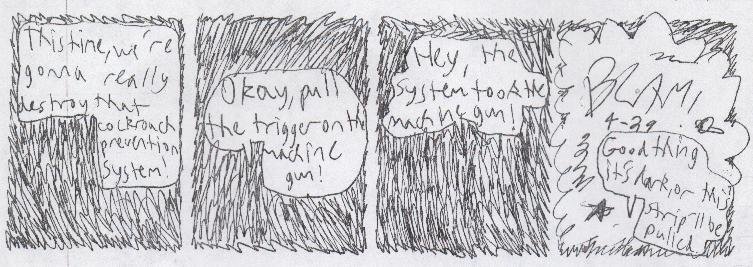 This time, we're
gonna really
destroy that
cockroach
prevention
system!
Okay, pull
the trigger on the
machine
gun!
Hey, the
system took the
machine gun!
BLAM!
4-29
Good thing
it's dark, or this
strip'll be
pulled.